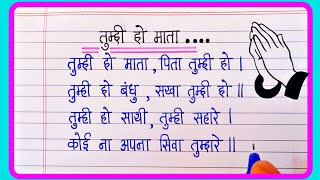 तुम्ही हो माता ....
तुम्ही हो माता, पिता तुम्ही हो ।
तुम्ही हो बंधु, सखा तुम्ही हो ॥
तुम्ही हो साथी, तुम्ही सहारे ।
कोई ना अपना सिवा तुम्हारे ॥